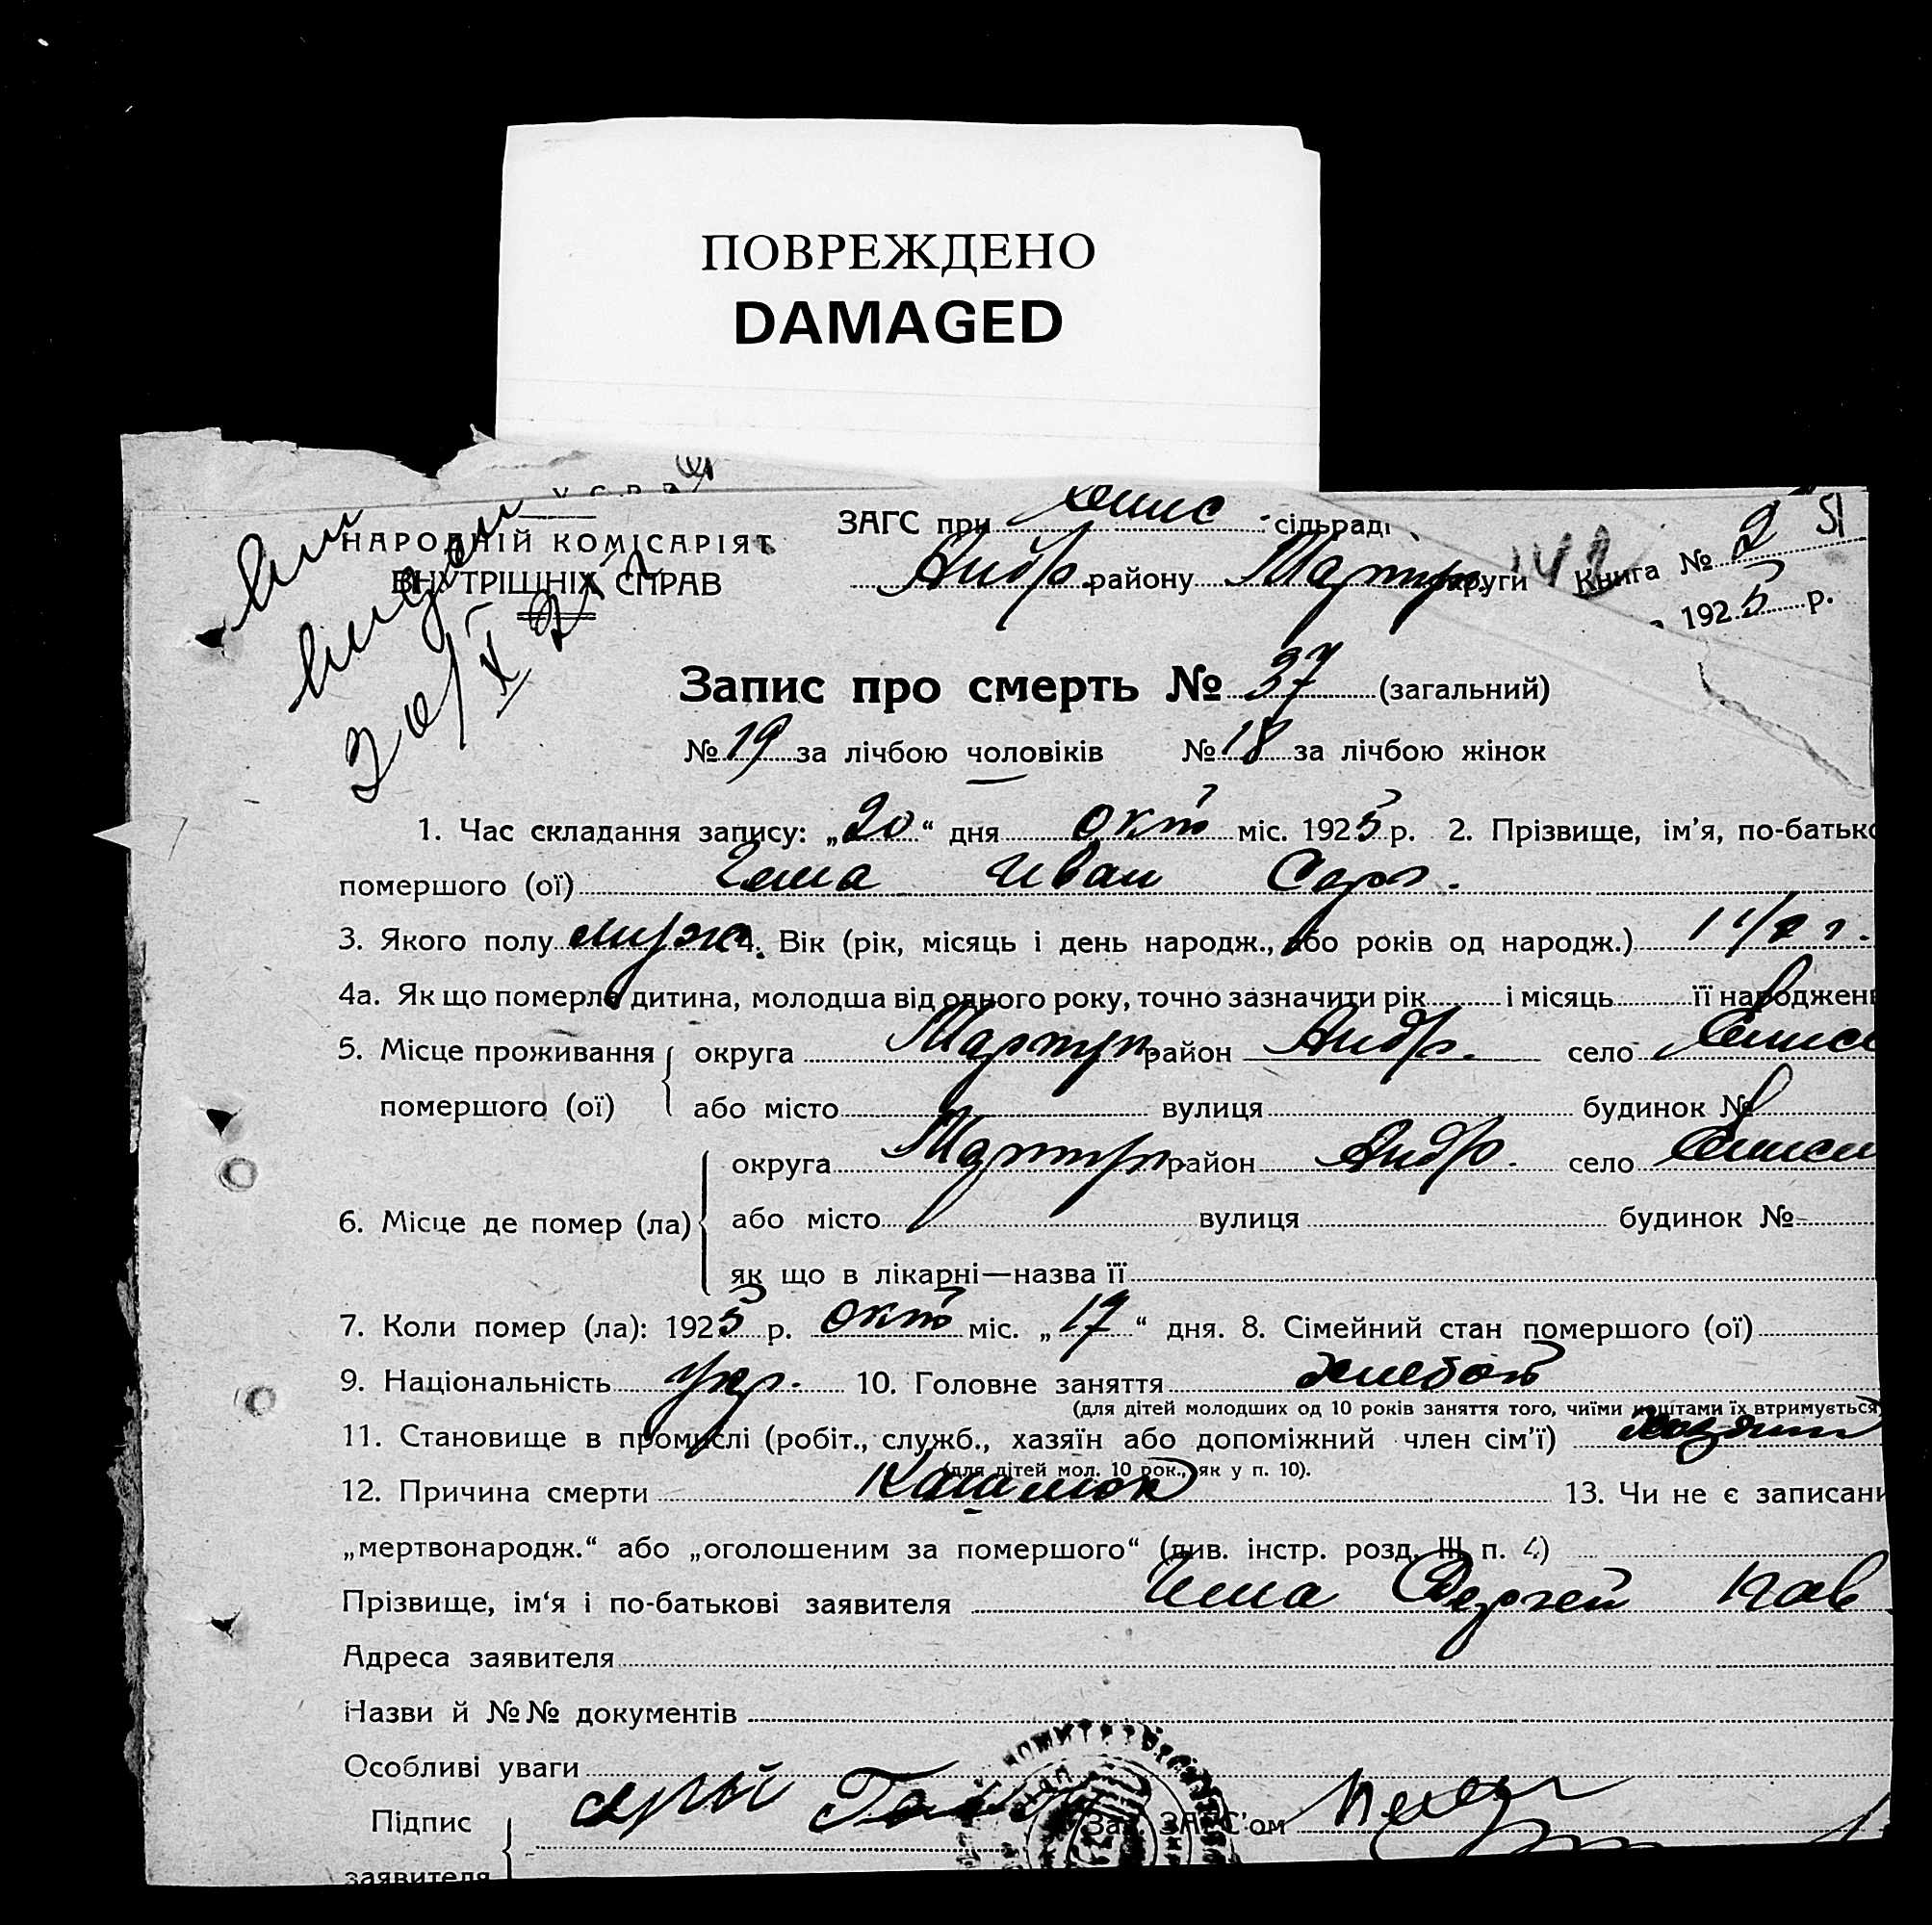 ПОВРЕЖДЕНО
DAMAGED
НАРОДНІЙ КОМІСАРІЯТ
ВНУТРІШНІХ СПРАВ
20/X
ЗАГС при сільраді
Андр. району Мариуп. округи
142
Книга № 2 51
1925 р.
Запис про смерть № 37 (загальний)
№ 19 за лічбою чоловіків № 18 за лічбою жінок
1. Час складання запису: „20“ дня окт міс. 1925 р. 2. Прізвище, ім’я, по-батько
помершого (ої) Чепа Иван Серг.
3. Якого полу муж 4. Вік (рік, місяць і день народж., або років од народж.)
4а. Як що померла дитина, молодша від одного року, точно зазначити рік і місяць її народжен
5. Місце проживання округа Мариуп. район Андр. село
помершого (ої) або місто вулиця будинок №
округа Мариуп. район Андр. село
6. Місце де помер (ла) або місто вулиця будинок №
як що в лікарні—назва її
7. Коли помер (ла): 1925 р. окт міс. „17“ дня. 8. Сімейний стан помершого (ої)
9. Національність укр. 10. Головне заняття хлебоп
(для дітей молодших од 10 років заняття того, чиїми коштами їх втримується
11. Становище в промислі (робіт., служб., хазяїн або допоміжний член сім’ї) хозяин
(для дітей мол. 10 рок., як у п. 10).
12. Причина смерти 13. Чи не є записани
„мертвонародж.“ або „оголошеним за помершого“ (див. інстр. розд. III п. 4)
Прізвище, ім‘я і по-батькові заявителя Чепа Сергей Пав
Адреса заявителя
Назви й №№ документів
Особливі уваги
Підпис Зав. ЗАГС’ом
заявителя